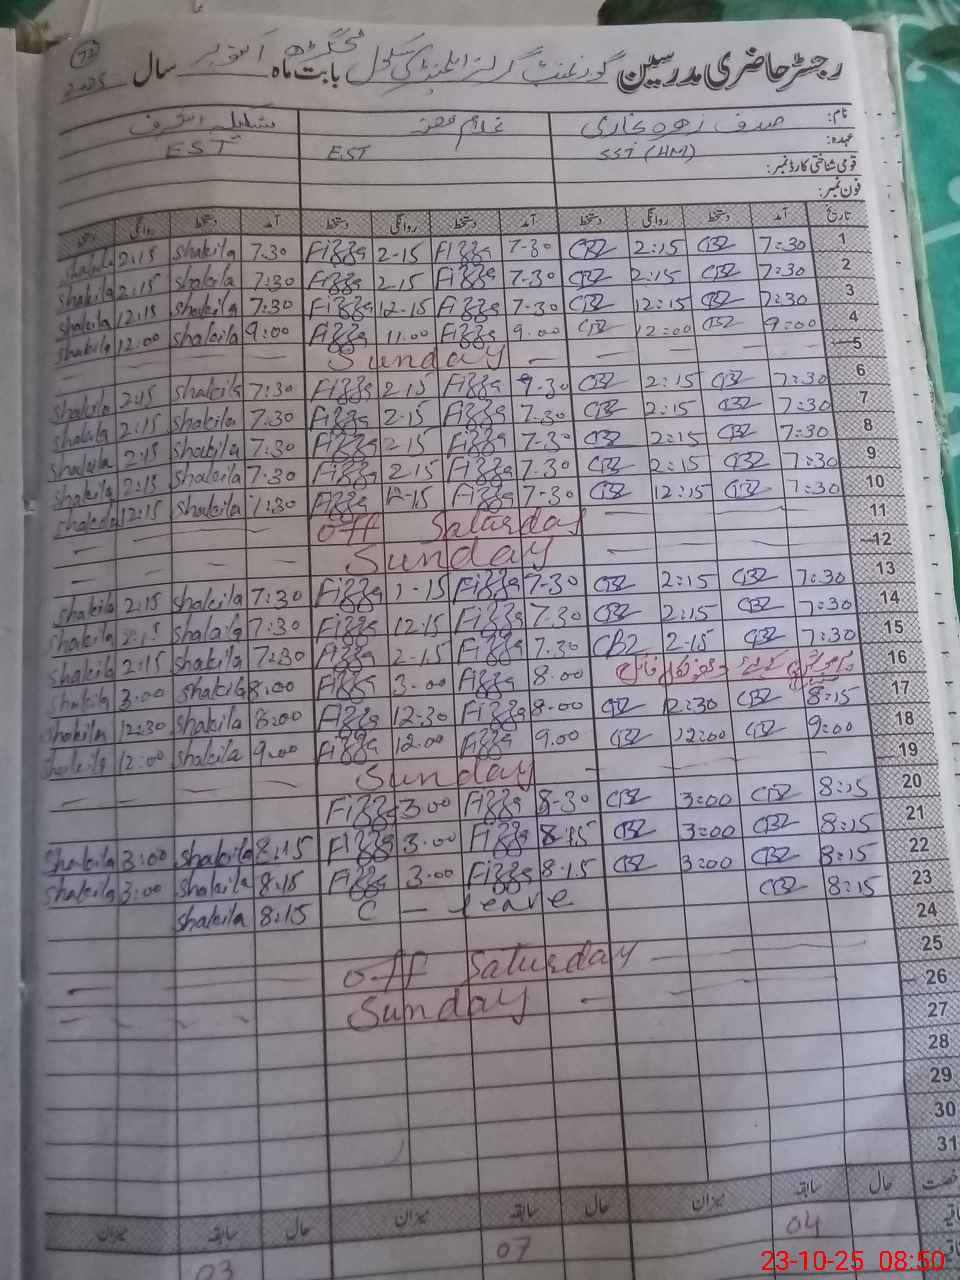 رجسٹر حاضری مدرسین گورنمنٹ گرلز ایلیمنٹری سکول بابت ماہ اکتوبر سال 2025
73
نام: صدف زہرہ بخاری غلام فضہ شکیلہ اشرف
عہدہ: SST (HM) EST EST
قومی شناختی کارڈ نمبر:
فون نمبر:
تاریخ آمد دستخط روانگی دستخط آمد دستخط روانگی دستخط آمد دستخط روانگی دستخط
shakila 2:15 shakila 7.30 Fizza 2-15 Fizza 7-30 2:15 7:30 1
shakila 2:15 shakila 7:30 Fizza 2.15 Fizza 7-30 2:15 7:30 2
shakila 12:15 shakila 7:30 Fizza 12-15 Fizza 7-30 12:15 7:30 3
shakila 12:00 shakila 9:00 Fizza 11.00 Fizza 9.00 12:00 9:00 4
Sunday 5
shakila 2:15 shakila 7:30 Fizza 2.15 Fizza 2:15 7:30 6
shakila 2:15 shakila 7:30 Fizza 2-15 Fizza 7.30 2:15 7:30 7
shakila 2:15 shakila 7.30 Fizza 2.15 Fizza 7-30 2:15 7:30 8
shakila 2:15 shakila 7.30 Fizza 2.15 Fizza 7.30 2:15 7:30 9
shakila 12:15 shakila 7:30 Fizza 12-15 Fizza 7-30 12:15 7:30 10
off Saturday 11
Sunday 12
shakila 2:15 shakila 7:30 Fizza Fizza 7-30 2:15 7:30 13
shakila shakila 7:30 Fizza 12.15 Fizza 7.30 2:15 7:30 14
shakila 2:15 shakila 7:30 Fizza 2-15 Fizza 7.30 2-15 7:30 15
shakila 3.00 shakila 8:00 Fizza 3.00 Fizza 8.00 16
shakila 12:30 shakila 8:00 Fizza 12.30 Fizza 8-00 12:30 8:15 17
shakila 12:00 shakila 9.00 Fizza 12.00 Fizza 9.00 12:00 9:00 18
Sunday 19
Fizza 3.00 Fizza 8-30 3:00 8:15 20
shakila 3:00 shakila 8:15 Fizza 3.00 Fizza 8-15 3:00 8:15 21
shakila 3:00 shakila 8:15 Fizza 3.00 Fizza 8-15 3:00 8:15 22
shakila 8:15 C - leave 8:15 23
24
off Saturday 25
Sunday 26
27
28
29
30
31
حال سابقہ میزان حال سابقہ میزان حال سابقہ میزان
04 07 03
23-10-25 08:50